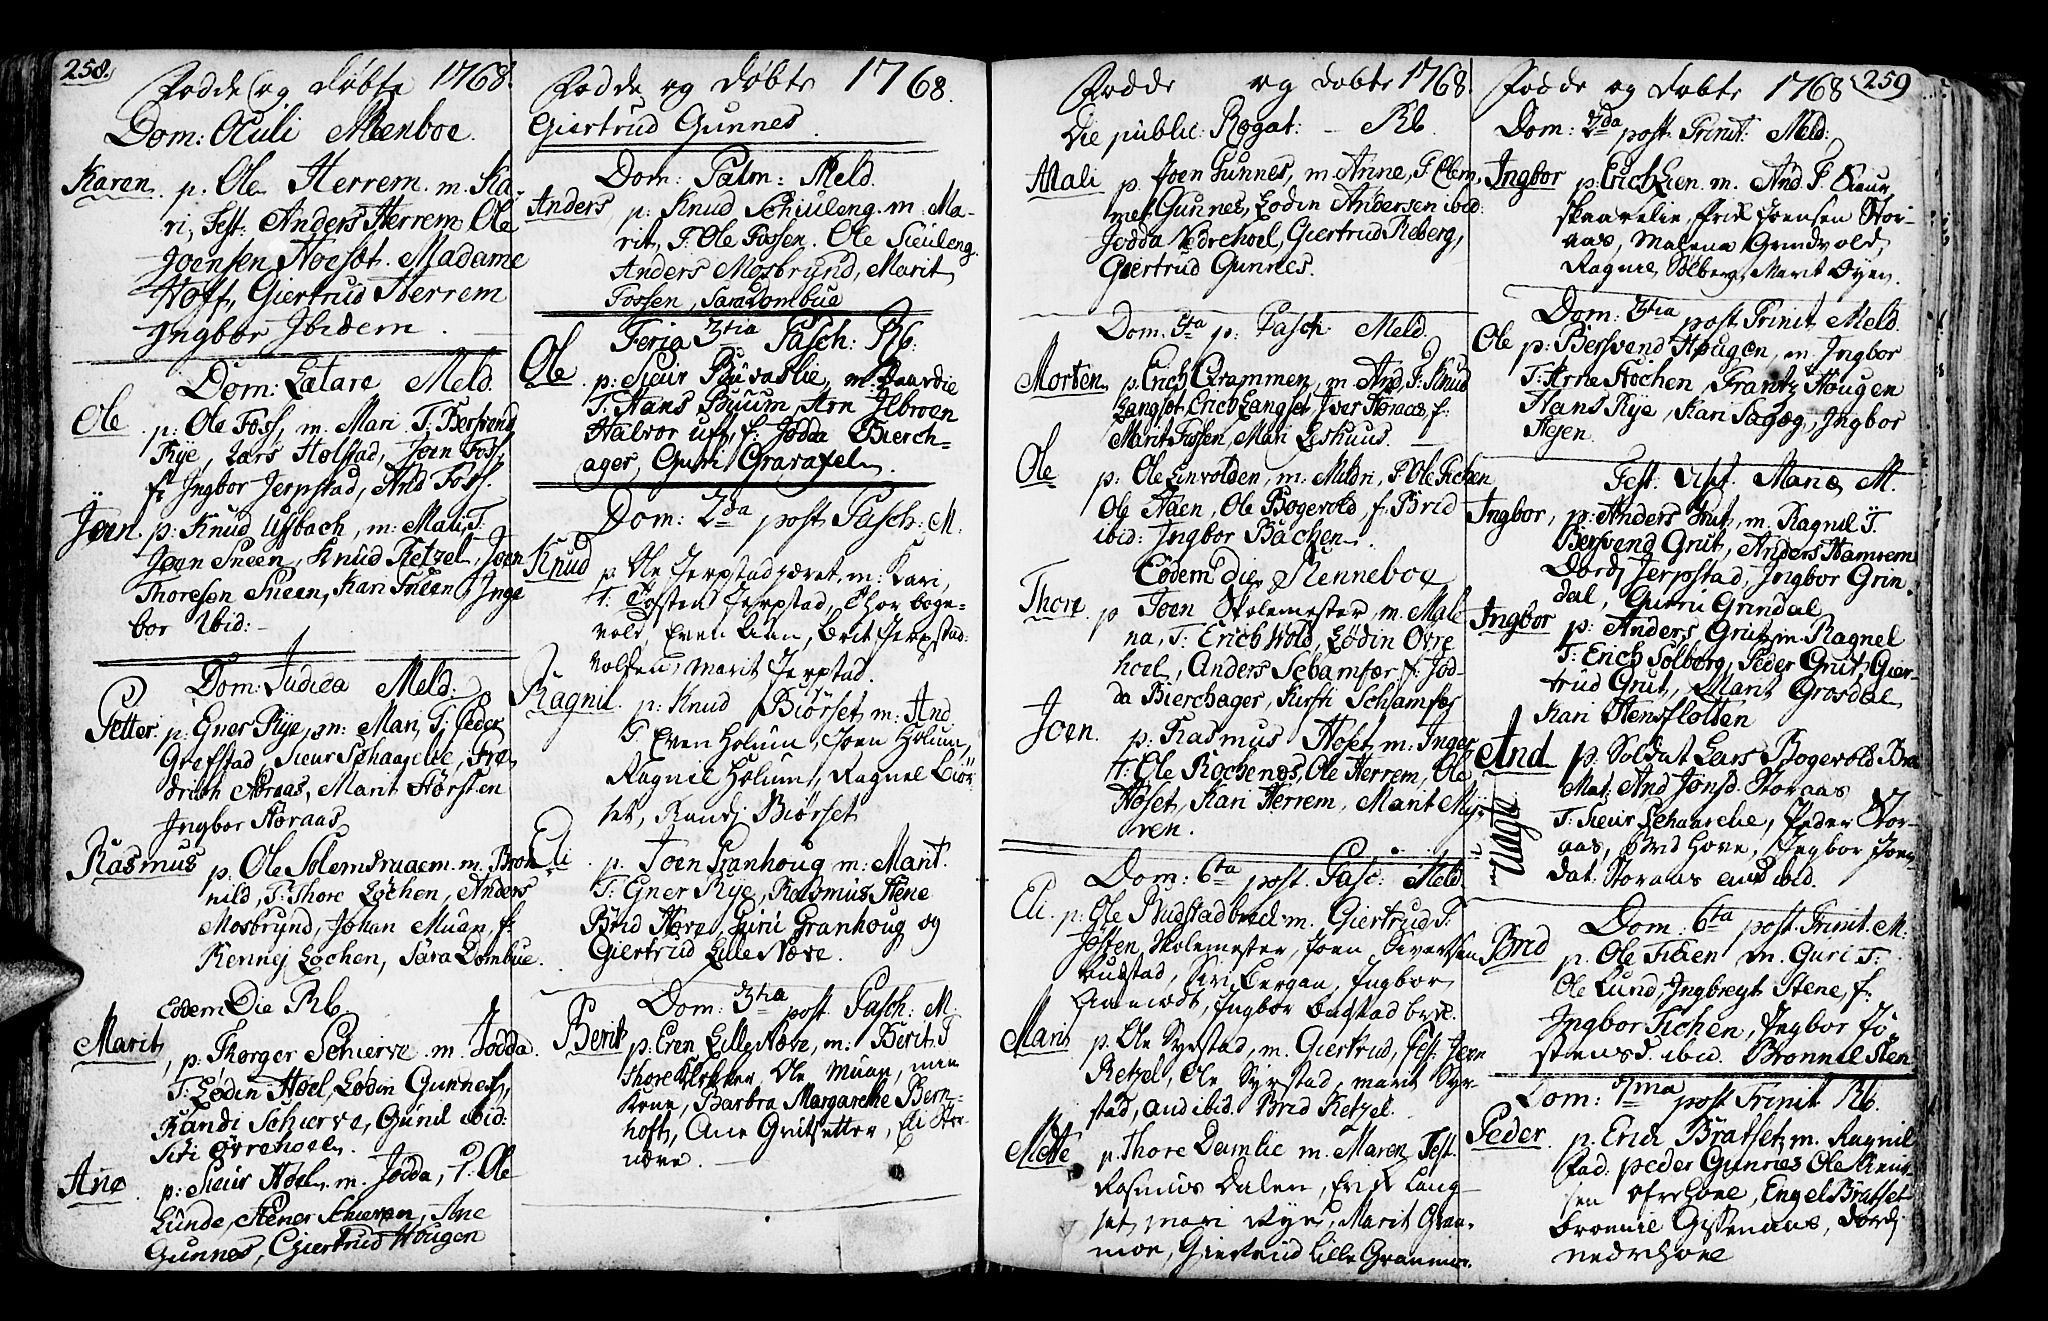 258.
Fødde og døbte 1768.
Dom: Oculi Mænboe.
Karen p. Ole Herrem. m. Ka-
ri, Test: Anders Herrem, Ole
Joensen Hoesæt. Madame
Hoff, Giertrud Herrem
Ingbor Ibidem.
Dom: Lætare Meld.
Ole p: Ole Foss, m. Mari T: Bersvend
Rye, Lars Holstad, Joen Foss,
f: Ingbor Jerpstad, And Foss.
Joen. p: Knud Usbach, m: Mali, T.
Joen Sneen, Knud Retzel, Joen
Thoresen Sneen, Kari Sneen, Inge
bor Ibid:
Dom: Judica Meld:
Petter p: Egner Rye, m: Mari, T: Peder
Grefstad, Sieur Schaarelie, Fre
drich Storaas, Marit Hørsten
Ingbor Storaas
Rasmus p: Ole Solemsmaem m. Bron
nild, T: Thore Løchen, Anders
Mosbrynd, Johan Muan, f:
Rennej Løchen, Sara Dombue.
Eodem Die Rb.
Marit, p: Thorger Schierve m. Jodda.
T: Lødin Hoel, Lødin Gunnes,
Randi Schierve, Gunil ibid:
Siri Øvrehoel.
Ane p: Sieur Hoel, m. Jodda, T. Ole
Lunde, Stener Schierven, Ane
Gunnes, Giertrud Hougen
Fødde og døbte 1768.
Giertrud Gunnes.
Dom: Palm: Meld.
Anders p: Knud Schiuleng. m: Ma-
rit, T: Ole Fossen. Ole Sieuleng.
Anders Mosbrynd, Marit
Fossen, Sara Dombue
Feria 3tia Pasch: Rb:
Ole p: Sieur Buvaslie, m: Baardie
T: Hans Buum, Arn Ilbroen
Halvor Uff, f: Jodda Bierch-
ager, Guri Gravaxel.
Dom: 2da post Pasch: M.
Knud p: Ole Jerpstadjæret, m: Kari,
T. Tosten Jerpstad, Thor boge-
vold, Even Aan, Brit Jerpstad-
volden, Marit Jerpstad.
Ragnil. p: Knud Biørset, m: And:
T. Even Holum, Joen Holum,
Ragnil Holum, Ragnel Biør
set, Randj Biørset
Eli p. Joen Granhoug m: Marit.
T: Egner Rye, Rasmus Stene
Brid Næve, Guru Granhoug og
Giertrud Lille Næve.
Dom: 3tia post Pasch: M.
Berit p: Eren Lille Næve, m: Berit. T
Thore Klokker, Ole Muan, min
kone, Barbra Margarethe Bern-
hoft, Ane Gritsetter, Eli Stor-
næve.
Fødde og døbte 1768.
Die public: Rogat: - Rb.
Mali p. Joen Gunnes, m. Anne, T. Clem,
met Gunnes, Lodin Andersen ibid:
Jodda Nedrehoel, Giertrud Reberg,
Giertrud Gunnes.
Dom: 5ta p: Pasch: Meld.
Morten p. Erich Grammen, m And, T: Knud
Langset, Erich Langset, Iver Storaas, f:
Marit Fossen, Mari Leshuus.
Ole p: Ole Envolden, m: Mildri, T. Ole Fichen
Ole Aaen, Ole Bogevold, f: Brid
ibid: Ingbor Bachen.
Eodem die Renneboe
Thore p Joen Skolemester, m. Male
na, T: Erich Vold, Lødin Øvre
hoel, Anders Sebamsær, f: Jod-
da Bierchager, Kirsti Schamfer
Joen. p: Rasmus Hoset, m: Inger
T: Ole Rochenes, Ole Herrem, Ole
Hoset, Kari Herrem, Marit My-
ren.
Dom: 6ta post. Pasc: Meld.
Eli. p: Ole Rudstadbred m. Giertrud T:
Josten Skolemester, Joen Sivertsen
Rudstad, Siri Bergan, Ingbor
Ingbor bred.
Marit p. Ole Syrstad, m. Giertrud, Test: Joen
Retzel, Ole Syrstad, marit Syr
stad, and ibid. Brid Retzel.
Mette p. Thore Damlie m. Maren, Test.
Rasmus Dalen, Erich Lang
set, mari Rye, Marit Gram-
moe, Giertrud Lille Grammo.
259
Fødde og døbte 1768
Dom: 2da post Trinit: Meld:
Ingbor p: Erich Lien. m. And. T. Sieur
skaarelie, Erik Joensen Stor-
aas, Malena Grindvold,
Ragnil Solberg, Marit Øyen.
Dom: 3tia post Trinit Meld.
Ole p: Bersvend Hougen, m. Ingbor
T: Arne Stochen, Frantz Hougen
Hans Rye, Kari Sagøg, Ingbor
Stejen.
Fest. Visit. Mariæ M.
Ingbor, p: Anders Grut, m. Ragnil T.
Bersvend Grut, Anders Hamrem
Dordj Jerpstad, Ingbor Grin-
dal, Gurru Grindal.
Ingbor p: Anders Grut, m Ragnel
T: Erich Solberg, Peder Grut, Gier-
trud Grut, Marit Grosdal
Kari Stensflotten
And p. Soldat Lars Bogevold
uægte Mat: And Jonsd. Storaas
T: Sieur Schaarelie, Peder Stor-
aas, Brid Hove, Ingbor Joens
dat: Storaas and ibid.
Dom: 6ta post. Trinit. M:
Brid p. Ole Fichen m. Guri T:
Ole Lund, Ingbreyt Stene, f:
Ingbor Fichen, Ingbor Jo
stensd. ibid. Bronnil Sten
Dom: 7ma post Trinit Rb.
Peder. p. Erich Bratset, m. Ragnil
Fad: peder Gunnes Ole Sieur
sen øfrehoel, Engel Bratset
Dordj
nedrehoel